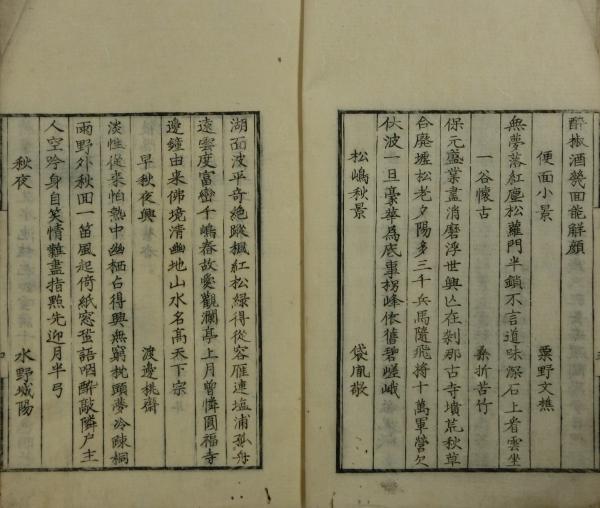 醉椒酒幾回能解顔
便面小景　粟野文樵
無夢落紅塵松蘿門半鎖不言道味深石上看雲坐
一谷懷古　桑折苦竹
保元盛業盡消磨浮世興亡在刹那古寺墳荒秋草
合廢壠松老夕陽多三千兵馬隨飛將十萬軍營欠
伏波一旦豪華爲底事拐峰依舊碧嵯峨
松嶋秋景　袋胤敬
湖面波平奇絶蹤楓紅松緑得從容雁連塩浦舟
遠雲度富巒千嶋春故愛觀瀾亭上月曾憐圓福寺
邊鐘由來佛境清幽地山水名高天下宗
早秋夜興　渡邉桃齋
淡性從來怕熱中幽栖占得興無窮枕頭夢冷陳桐
雨野外秋回一笛風起倚紙窓蛩語咽醉敲隣戸主
人空吟身自笑情難盡指點先迎月半弓
秋夜　水野城陽